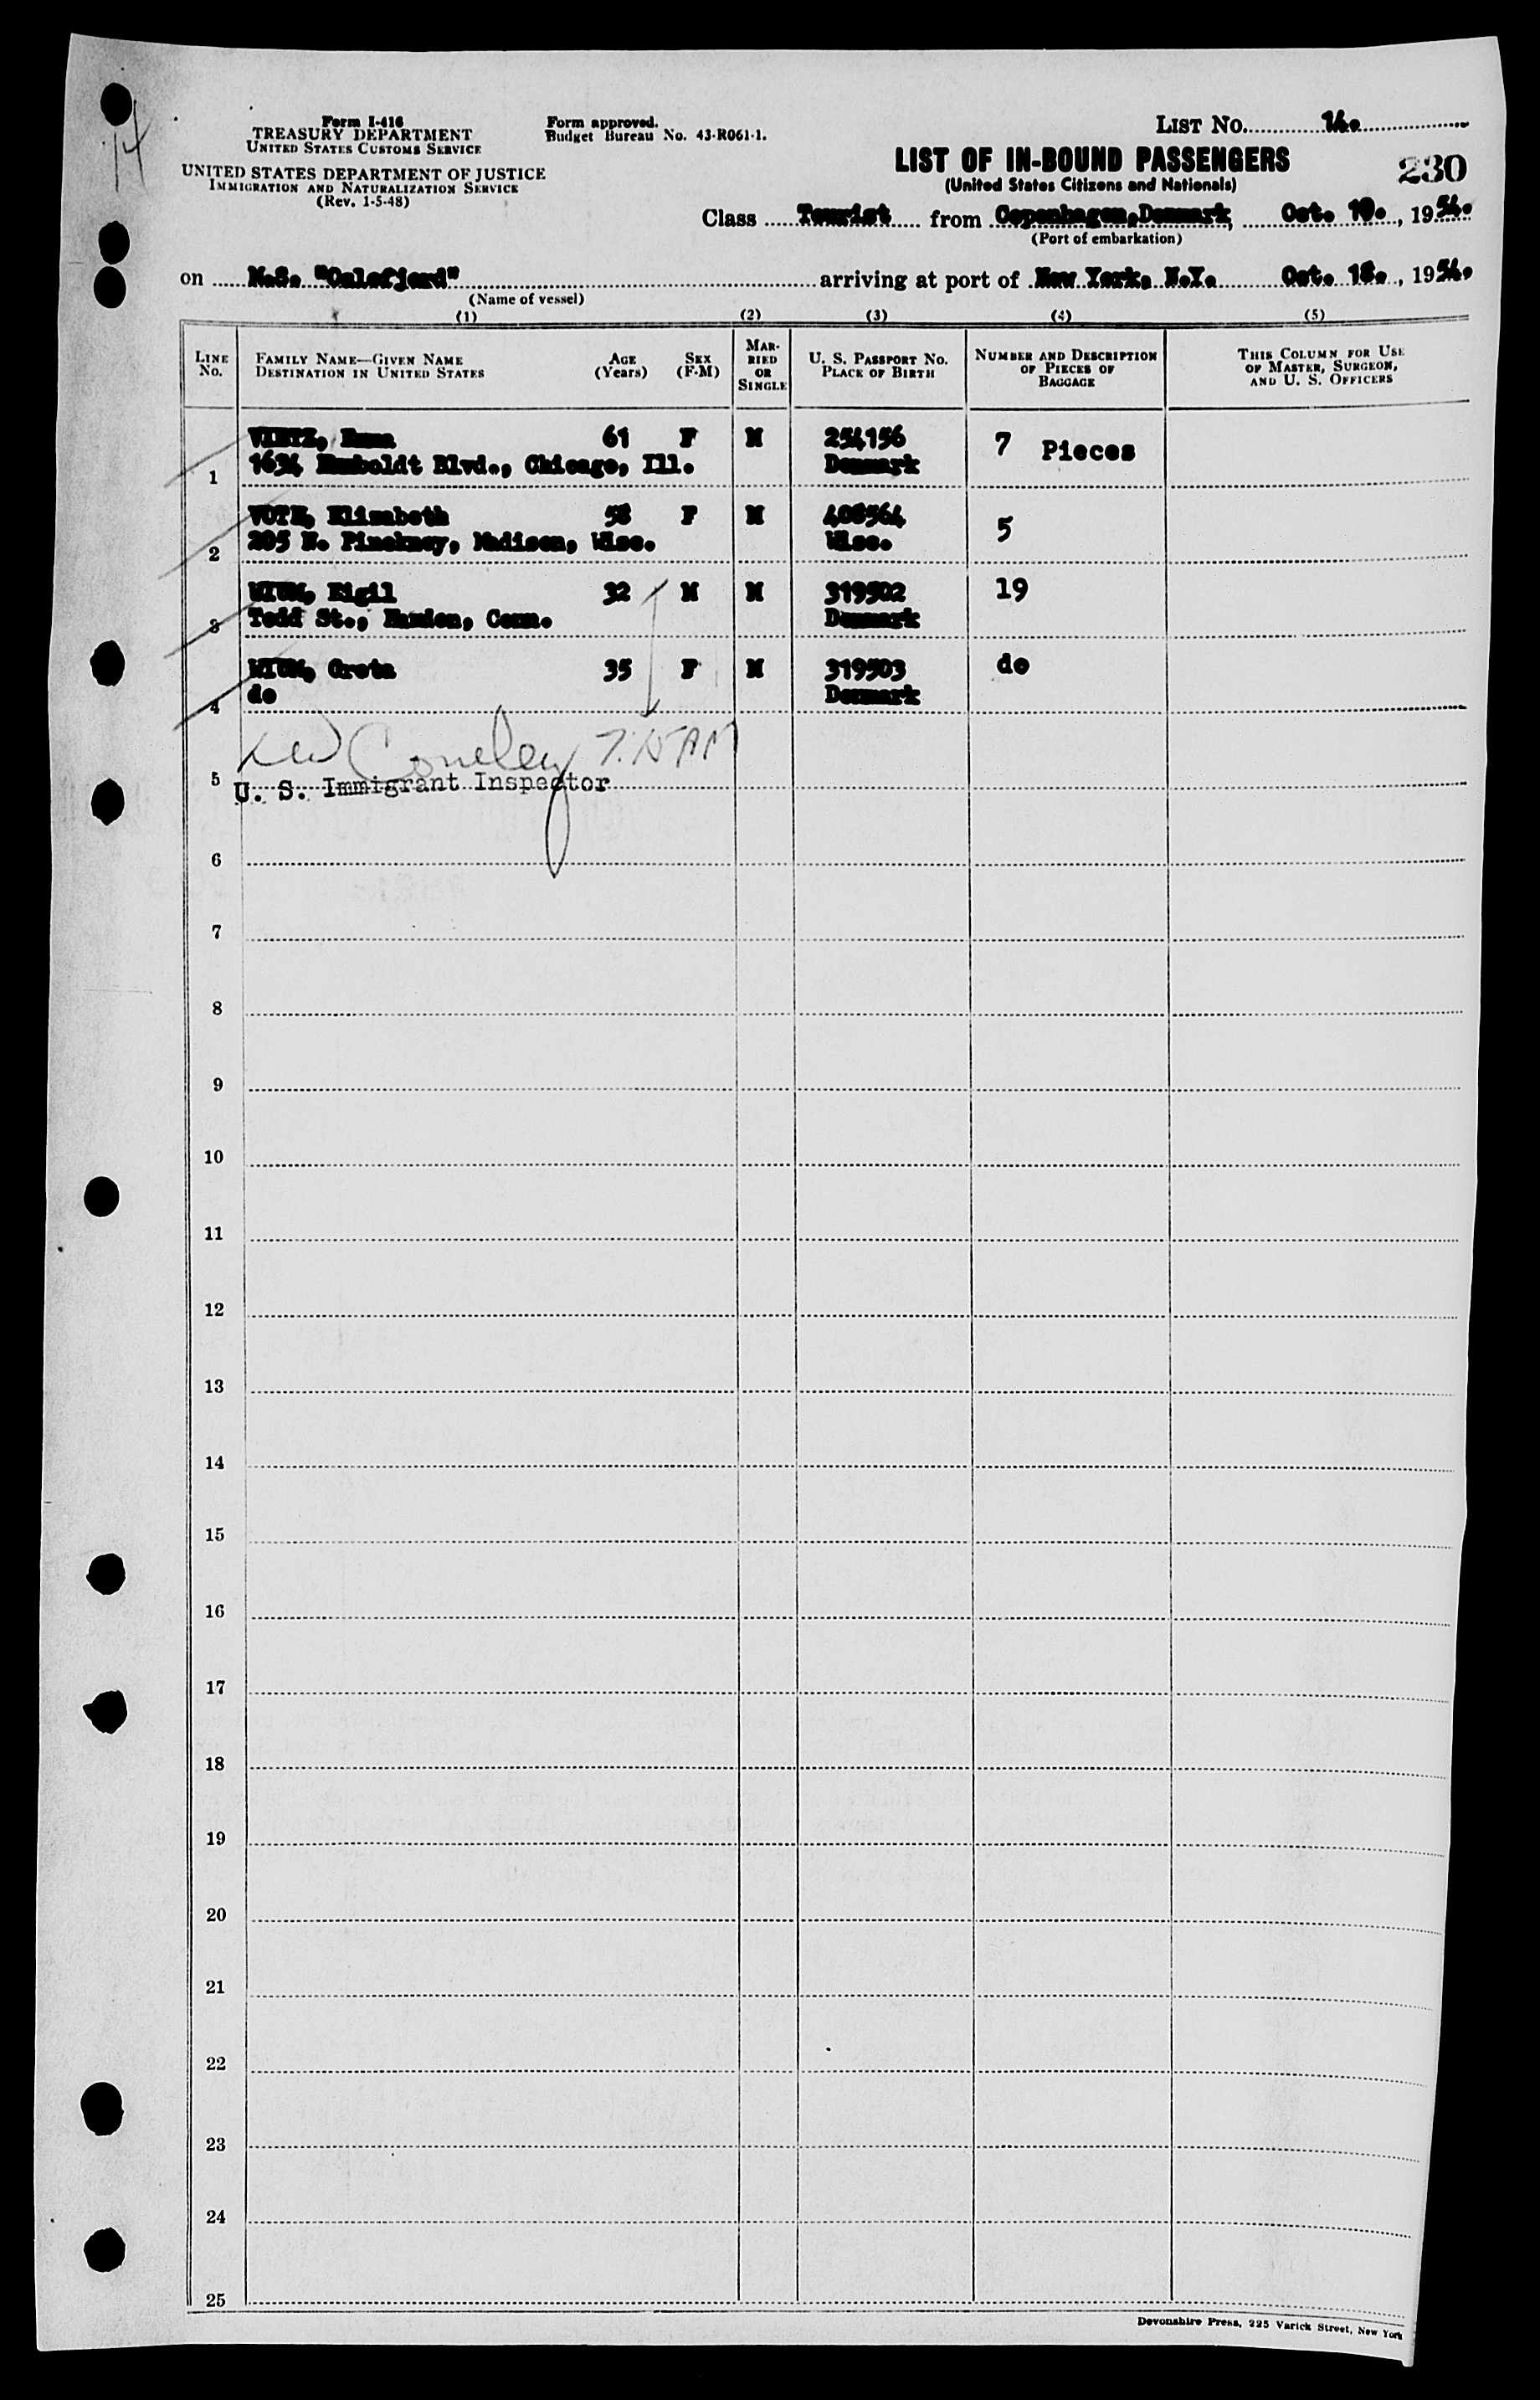 14
Form I-416
TREASURY DEPARTMENT
UNITED STATES CUSTOMS SERVICE
UNITED STATES DEPARTMENT OF JUSTICE
IMMIGRATION AND NATURALIZATION SERVICE
(Rev. 1-5-48)
Form approved.
Budget Bureau No. 43-R061-1.
LIST No. 14.
LIST OF IN-BOUND PASSENGERS
(United States Citizens and Nationals)
230
Class Tourist from Copenhagen, Denmark, Oct. 10., 1954.
(Port of embarkation)
on M.S. "Oslofjord" arriving at port of New York, N.Y. Oct. 18., 1954.
(Name of vessel)
(1) (2) (3) (4) (5)
LINE No. FAMILY NAME—GIVEN NAME DESTINATION IN UNITED STATES AGE (Years) SEX (F-M) MARRIED OR SINGLE U. S. PASSPORT No. PLACE OF BIRTH NUMBER AND DESCRIPTION OF PIECES OF BAGGAGE THIS COLUMN FOR USE OF MASTER, SURGEON, AND U. S. OFFICERS
61 F M 254156 7 Pieces
1 1634 Humboldt Blvd., Chicago, Ill. Denmark
VOTH, Elisabeth 58 F M 408564 5
2 205 N. Pinckney, Madison, Wisc. Wisc.
WIUM, Eigil 32 M M 319502 19
3 Todd St., Hamden, Conn. Denmark
WIUM, Greta 35 F M 319503 do
4 do Denmark
7:15 AM
5 U. S. Immigrant Inspector
6
7
8
9
10
11
12
13
14
15
16
17
18
19
20
21
22
23
24
25
Devonshire Press, 225 Varick Street, New York